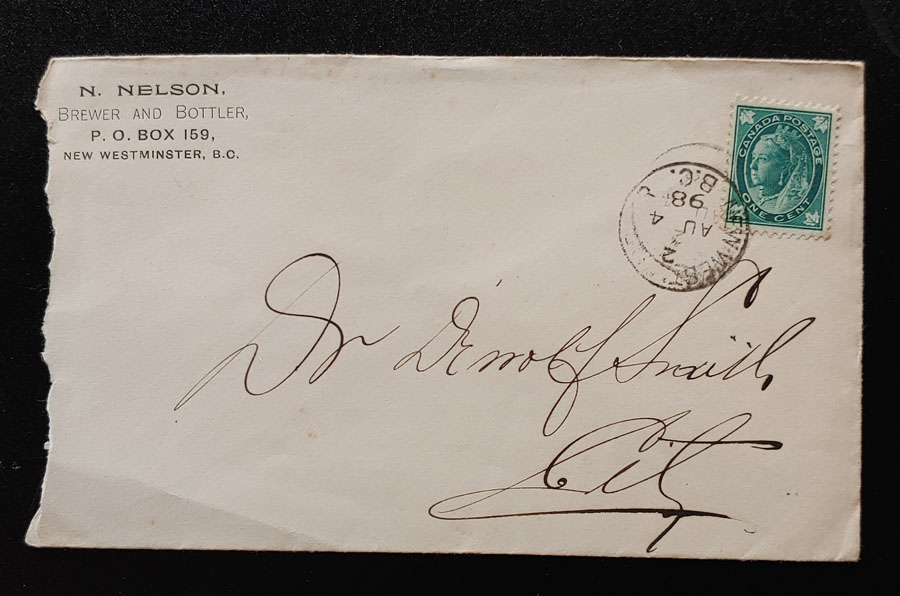 N. NELSON,
BREWER AND BOTTLER,
P. O. BOX 159,
NEW WESTMINSTER, B.C.
CANADA POSTAGE
ONE CENT
B.C.
98
4
AU
2
Dr De Wolf Smith
City